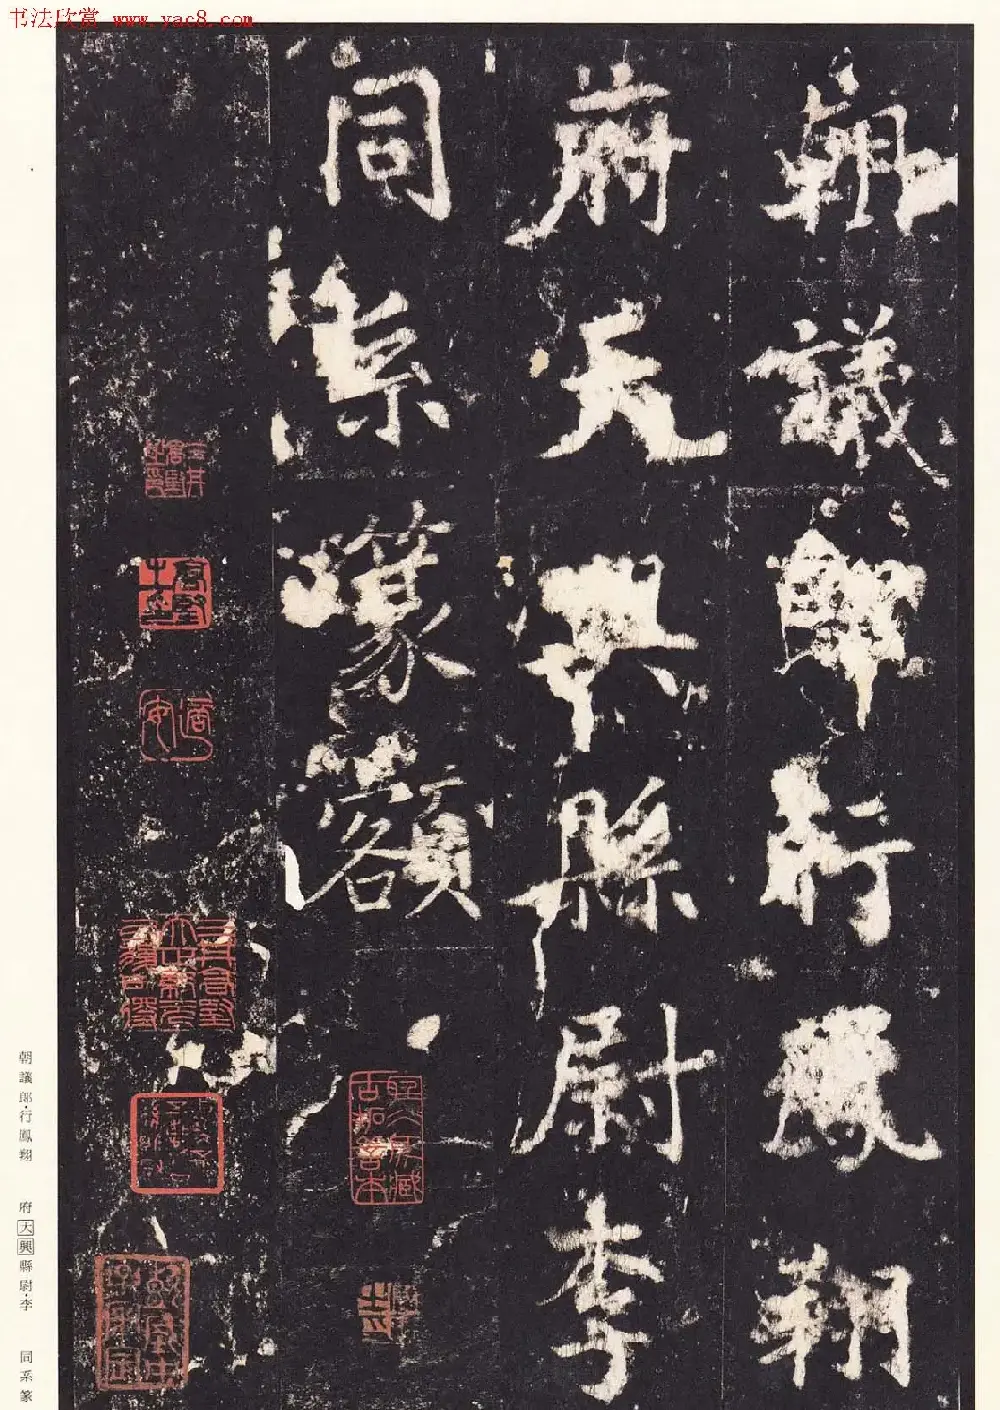 书法欣赏 www.yac8.com
朝議郎行鳳翔
府天興縣尉李
同系篆額
朝議郎·行鳳翔
府天興縣尉·李
同系篆